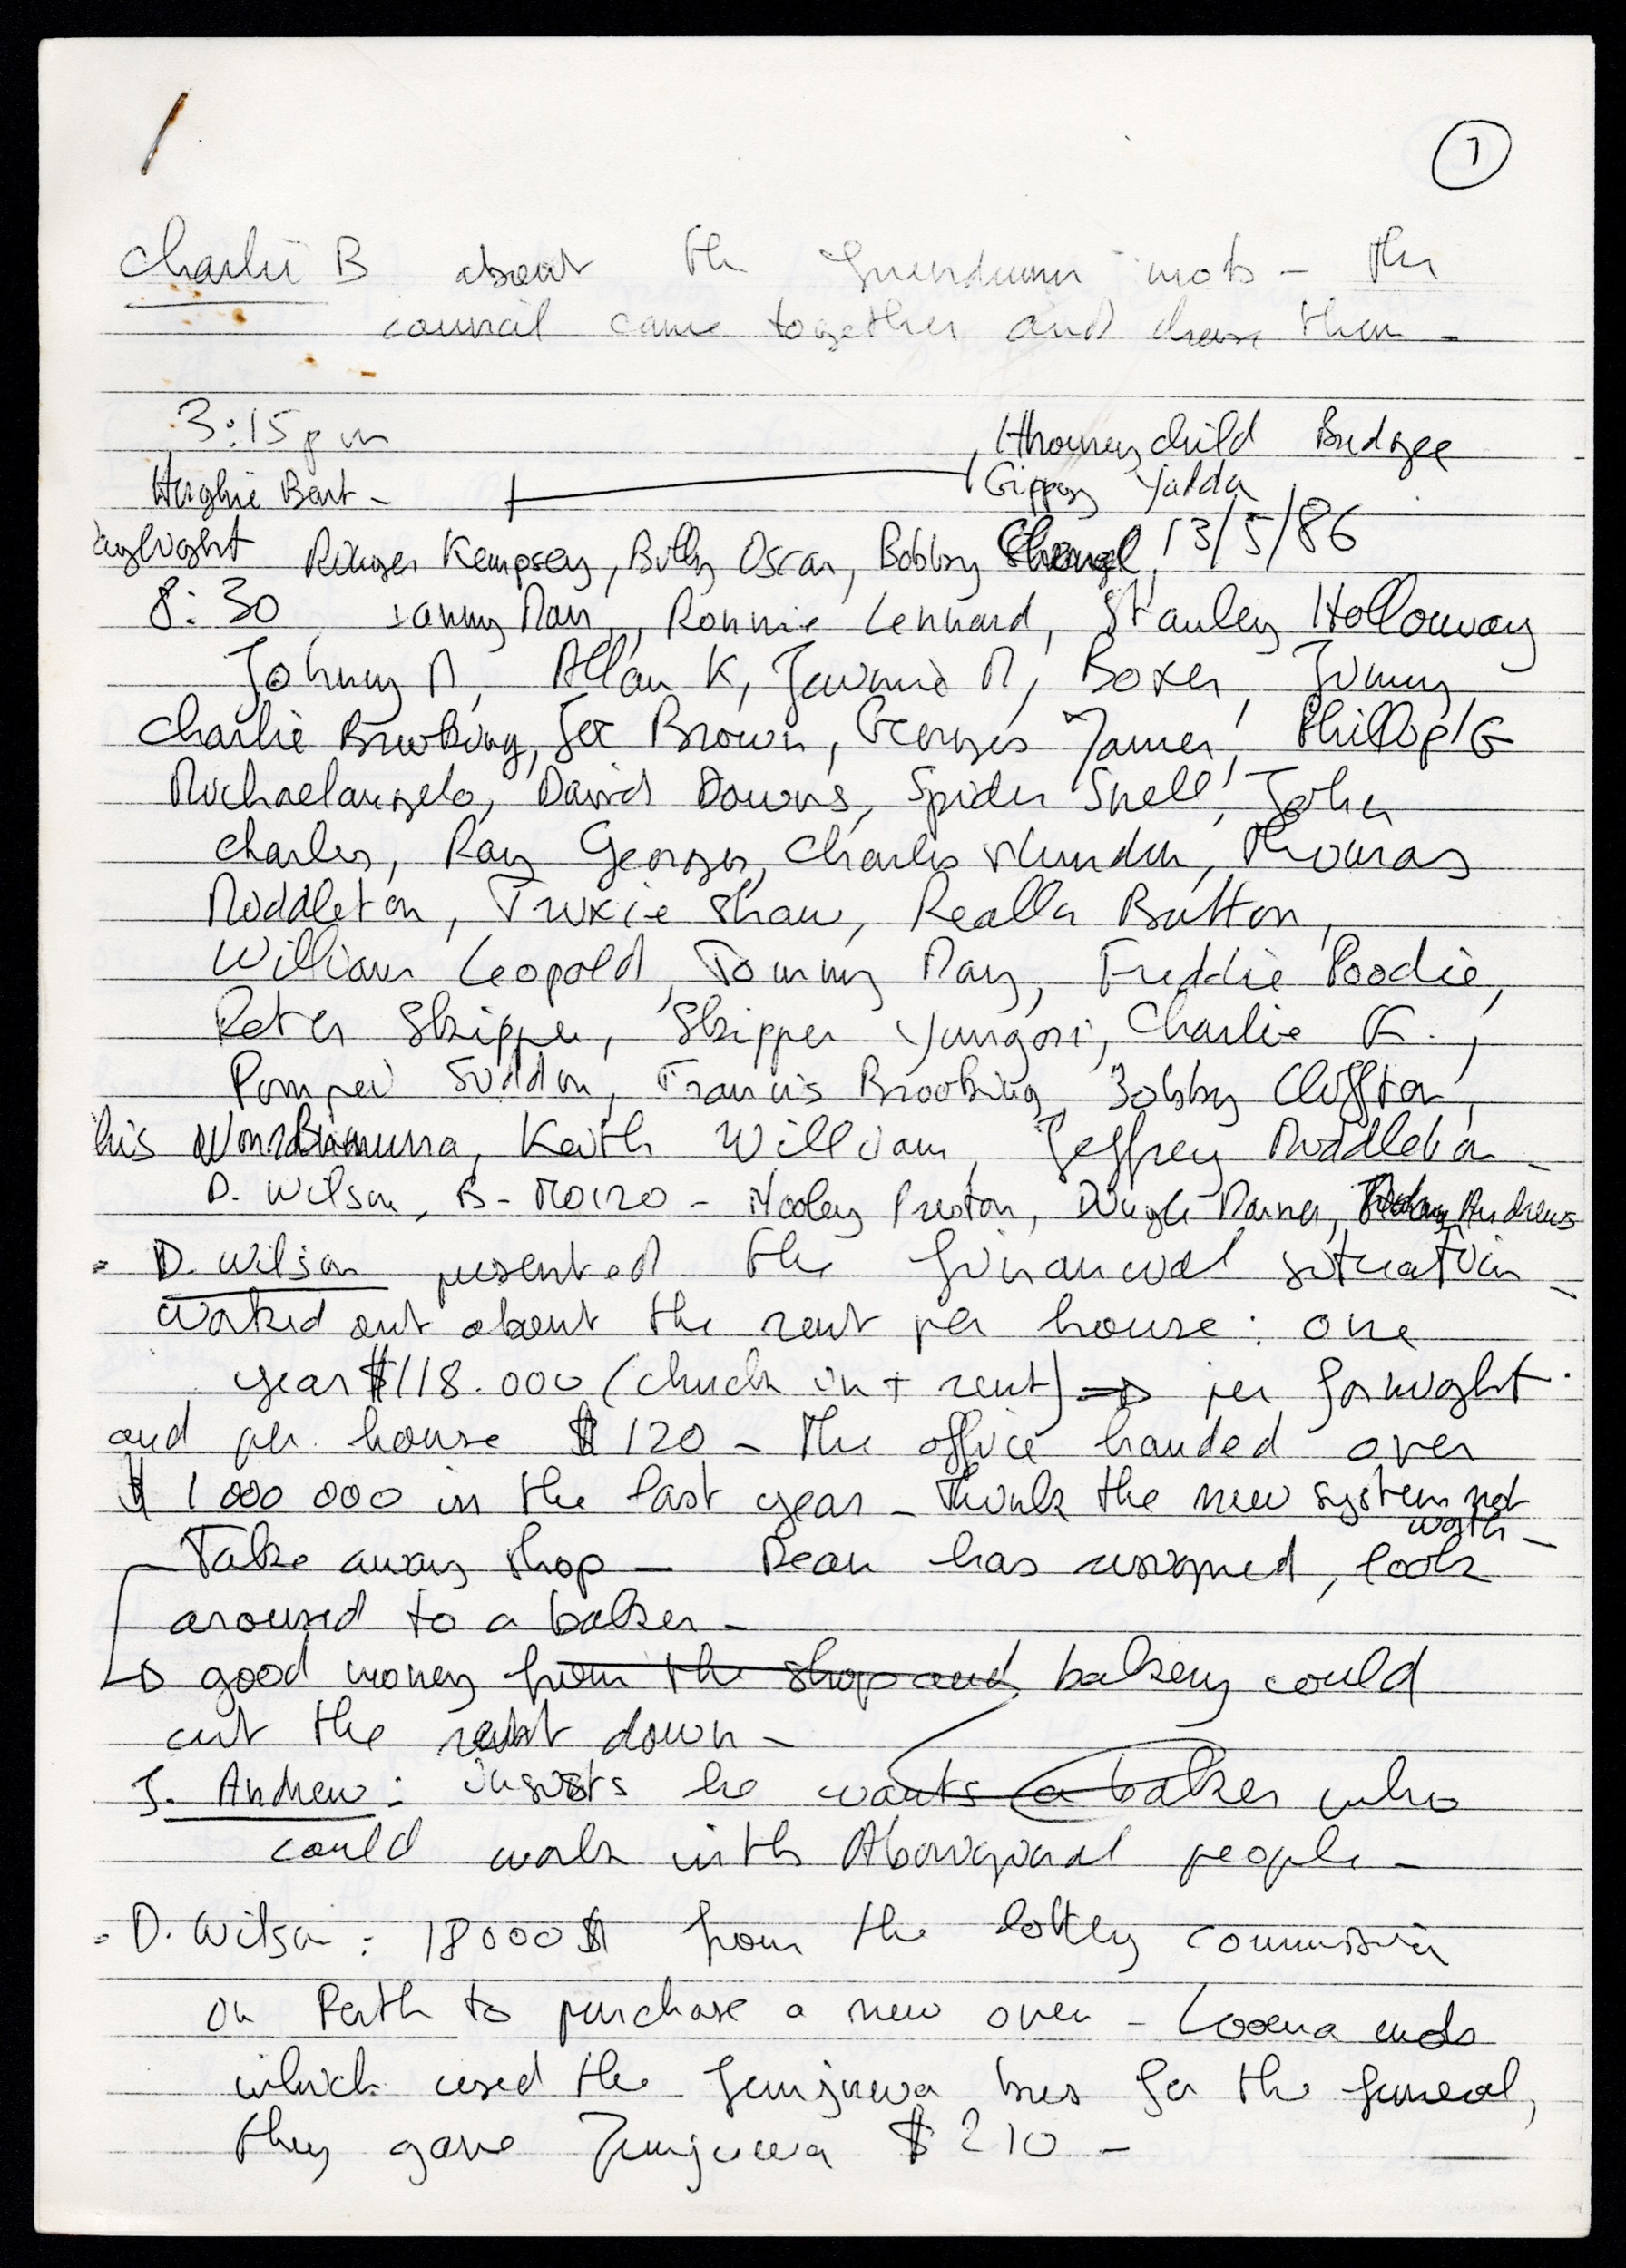 1
Charlie B about the mob - the
council came together and them -
3:15 pm
child Budgee
Hughie Bent - Gippsy Yadda
13/5/86
Ringer Kempsey, Billy Oscar, Bobby
8:30 , Ronnie Lennard, Stanley Holloway
Johnny M, Allan K, M, Boxer, Jimmy
Charlie Brooking, Joe Brown, Georges James, Phillip G
Michaelangelo, David Downs, Spider Snell, John
Charles, Ray Georges, Charles , Thomas
Middleton, Trixie Shaw, Realla Button,
William Leopold, Tommy May, Freddie Poodie,
Peter Skipper, Skipper Yungori, Charlie K.,
Pompei Siddon, Francis Brooking, Bobby Cliffton,
his , Keith William, Jeffrey Middleton -
D. Wilson, B - - Preston, , Andrews
= D. Wilson presented the financial situation -
worked out about the rent per house : one
year $118.000 (chuck in + rent) => per fornight.
and per house $ 120 - The office handed over
$ 1 000 000 in the last year - Think the new system not
worth -
Take away shop - Dean has resigned, look
around to a baker -
good money from the shop and bakery could
cut the rent down -
J. Andrew : insists he wants a baker who
could work with Aboriginal people -
= D. Wilson : 18000 $ from the lottery commission
in Perth to purchase a new oven - Looma mob
which used the Junjuwa bus for the funeral,
they gave Junjuwa $ 210 -